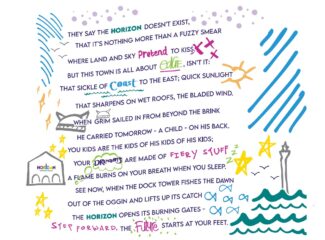 THEY SAY THE HORIZON DOESN'T EXIST,
THAT IT'S NOTHING MORE THAN A FUZZY SMEAR
WHERE LAND AND SKY Pretend TO KISS
BUT THIS TOWN IS ALL ABOUT edge, ISN'T IT:
THAT SICKLE OF Coast TO THE EAST; QUICK SUNLIGHT
THAT SHARPENS ON WET ROOFS, THE BLADED WIND.
WHEN GRIM SAILED IN FROM BEYOND THE BRINK
HE CARRIED TOMORROW - A CHILD - ON HIS BACK,
YOU KIDS ARE THE KIDS OF HIS KIDS OF HIS KIDS;
YOUR DREAMS ARE MADE OF FIERY STUFF
A FLAME BURNS ON YOUR BREATH WHEN YOU SLEEP.
SEE NOW, WHEN THE DOCK TOWER FISHES THE DAWN
OUT OF THE OGGIN AND LIFTS UP ITS CATCH
THE HORIZON OPENS ITS BURNING GATES -
STEP FORWARD, THE FUTURE STARTS AT YOUR FEET.
HORIZON